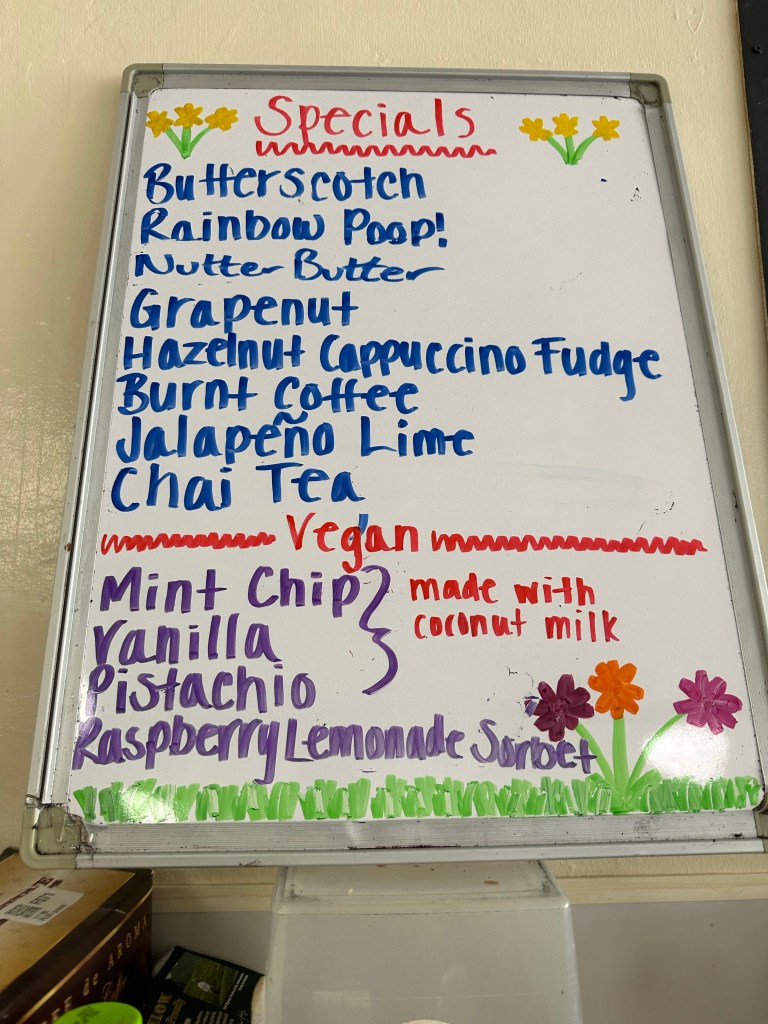 Specials
Butterscotch
Rainbow Poop!
Nutter Butter
Grapenut
Hazelnut Cappuccino Fudge
Burnt Coffee
Jalapeño Lime
Chai Tea
Vegan
Mint Chip
Vanilla
Pistachio
made with
coconut milk
Raspberry Lemonade Sorbet
AROMA